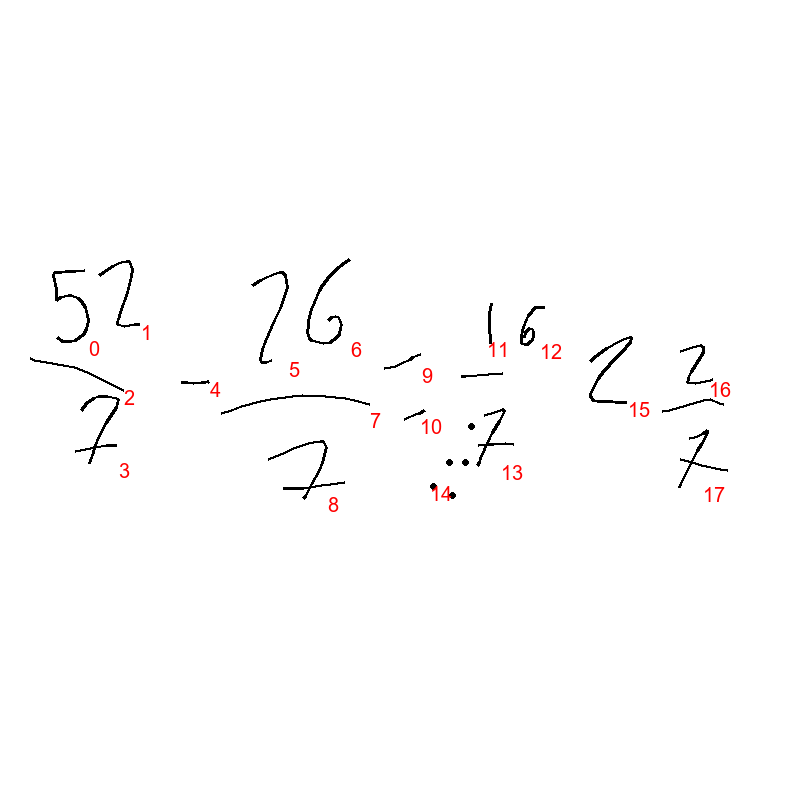 52/7 - 26/7 = 16/7 2 2/7
0 1 2 3 4 5 6 7 8 9 10 11 12 13 14 15 16 17